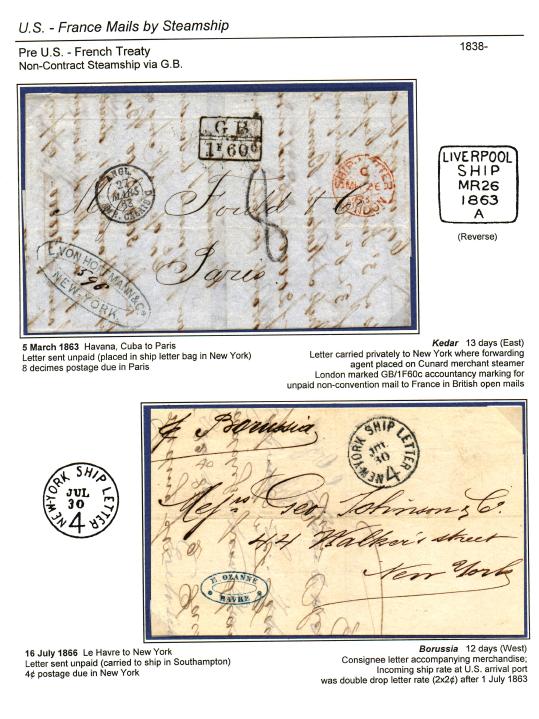 U.S. - France Mails by Steamship
Pre U.S. - French Treaty
1838-
Non-Contract Steamship via G.B.
G B
1F 60c
ANGL.
27
MARS
63
AMB. CALAIS D
SHIP-LETTER
C
MR 26
63
LONDON
8
Mr Fould & Co
Paris.
L. VON HOFFMANN & Co
596
NEW-YORK
LIVERPOOL
SHIP
MR26
1863
A
(Reverse)
5 March 1863 Havana, Cuba to Paris
Letter sent unpaid (placed in ship letter bag in New York)
8 decimes postage due in Paris
Kedar 13 days (East)
Letter carried privately to New York where forwarding
agent placed on Cunard merchant steamer
London marked GB/1F60c accountancy marking for
unpaid non-convention mail to France in British open mails
Borussia
NEW-YORK SHIP LETTER
JUL
30
4
NEW-YORK SHIP LETTER
JUL
30
4
Messrs Geo Johnson & Co.
44 Walker's street
New York
E OZANNE
HAVRE
16 July 1866 Le Havre to New York
Letter sent unpaid (carried to ship in Southampton)
4¢ postage due in New York
Borussia 12 days (West)
Consignee letter accompanying merchandise;
Incoming ship rate at U.S. arrival port
was double drop letter rate (2x2¢) after 1 July 1863